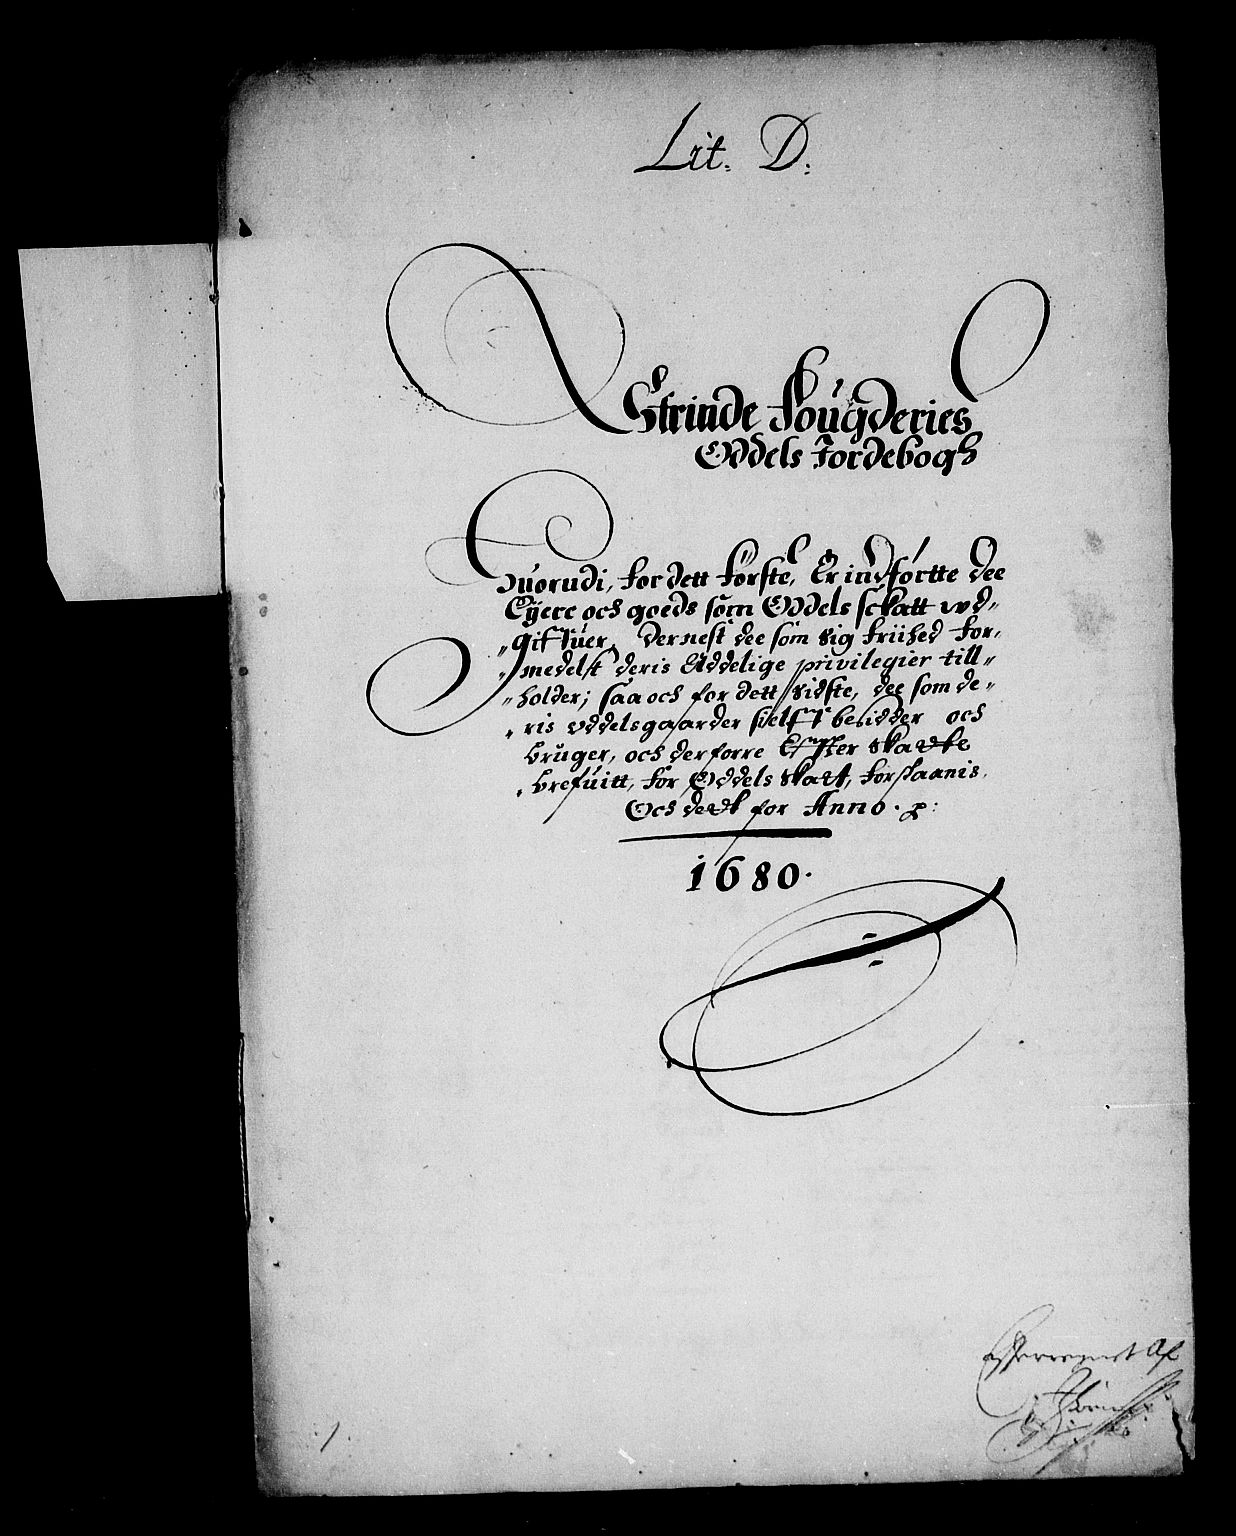 Lit. D:
Strinde Fougderies
Oddels Jordebogh
Huorudi, for dett Første, Er indførtte dee
Eÿere och goeds som Oddels schatt wd„
„giffuer, Dernest dee som sig friihed for„
„medelst deris Addelige privilegier till„
„holder; saa och for dett sidste, dee som de„
„ris oddelsgaarder sielff besidder och
bruger, och derforre Effter Skatte
„brefuitt, for Oddels skatt, forskaanis,
Och dett for Anno. p:
1680.
Efterregnet Af
1